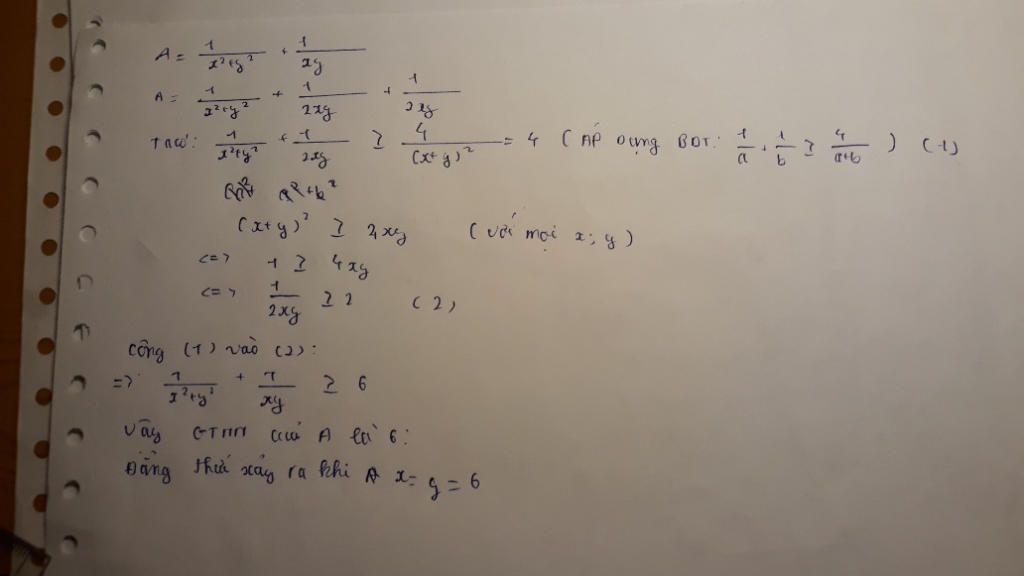 A = 1/(x²+y²) + 1/(xy)
A = 1/(x²+y²) + 1/(2xy) + 1/(2xy)
Ta có: 1/(x²+y²) + 1/(2xy) ≥ 4/(x+y)² = 4 (Áp dụng BĐT: 1/a + 1/b ≥ 4/(a+b)) (1)
a²+b²
(x+y)² ≥ 4xy (với mọi x; y)
<=> 1 ≥ 4xy
<=> 1/(2xy) ≥ 2 (2)
Cộng (1) vào (2):
=> 1/(x²+y²) + 1/(xy) ≥ 6
Vậy GTNN của A là 6:
Đẳng thức xảy ra khi x = y = 6